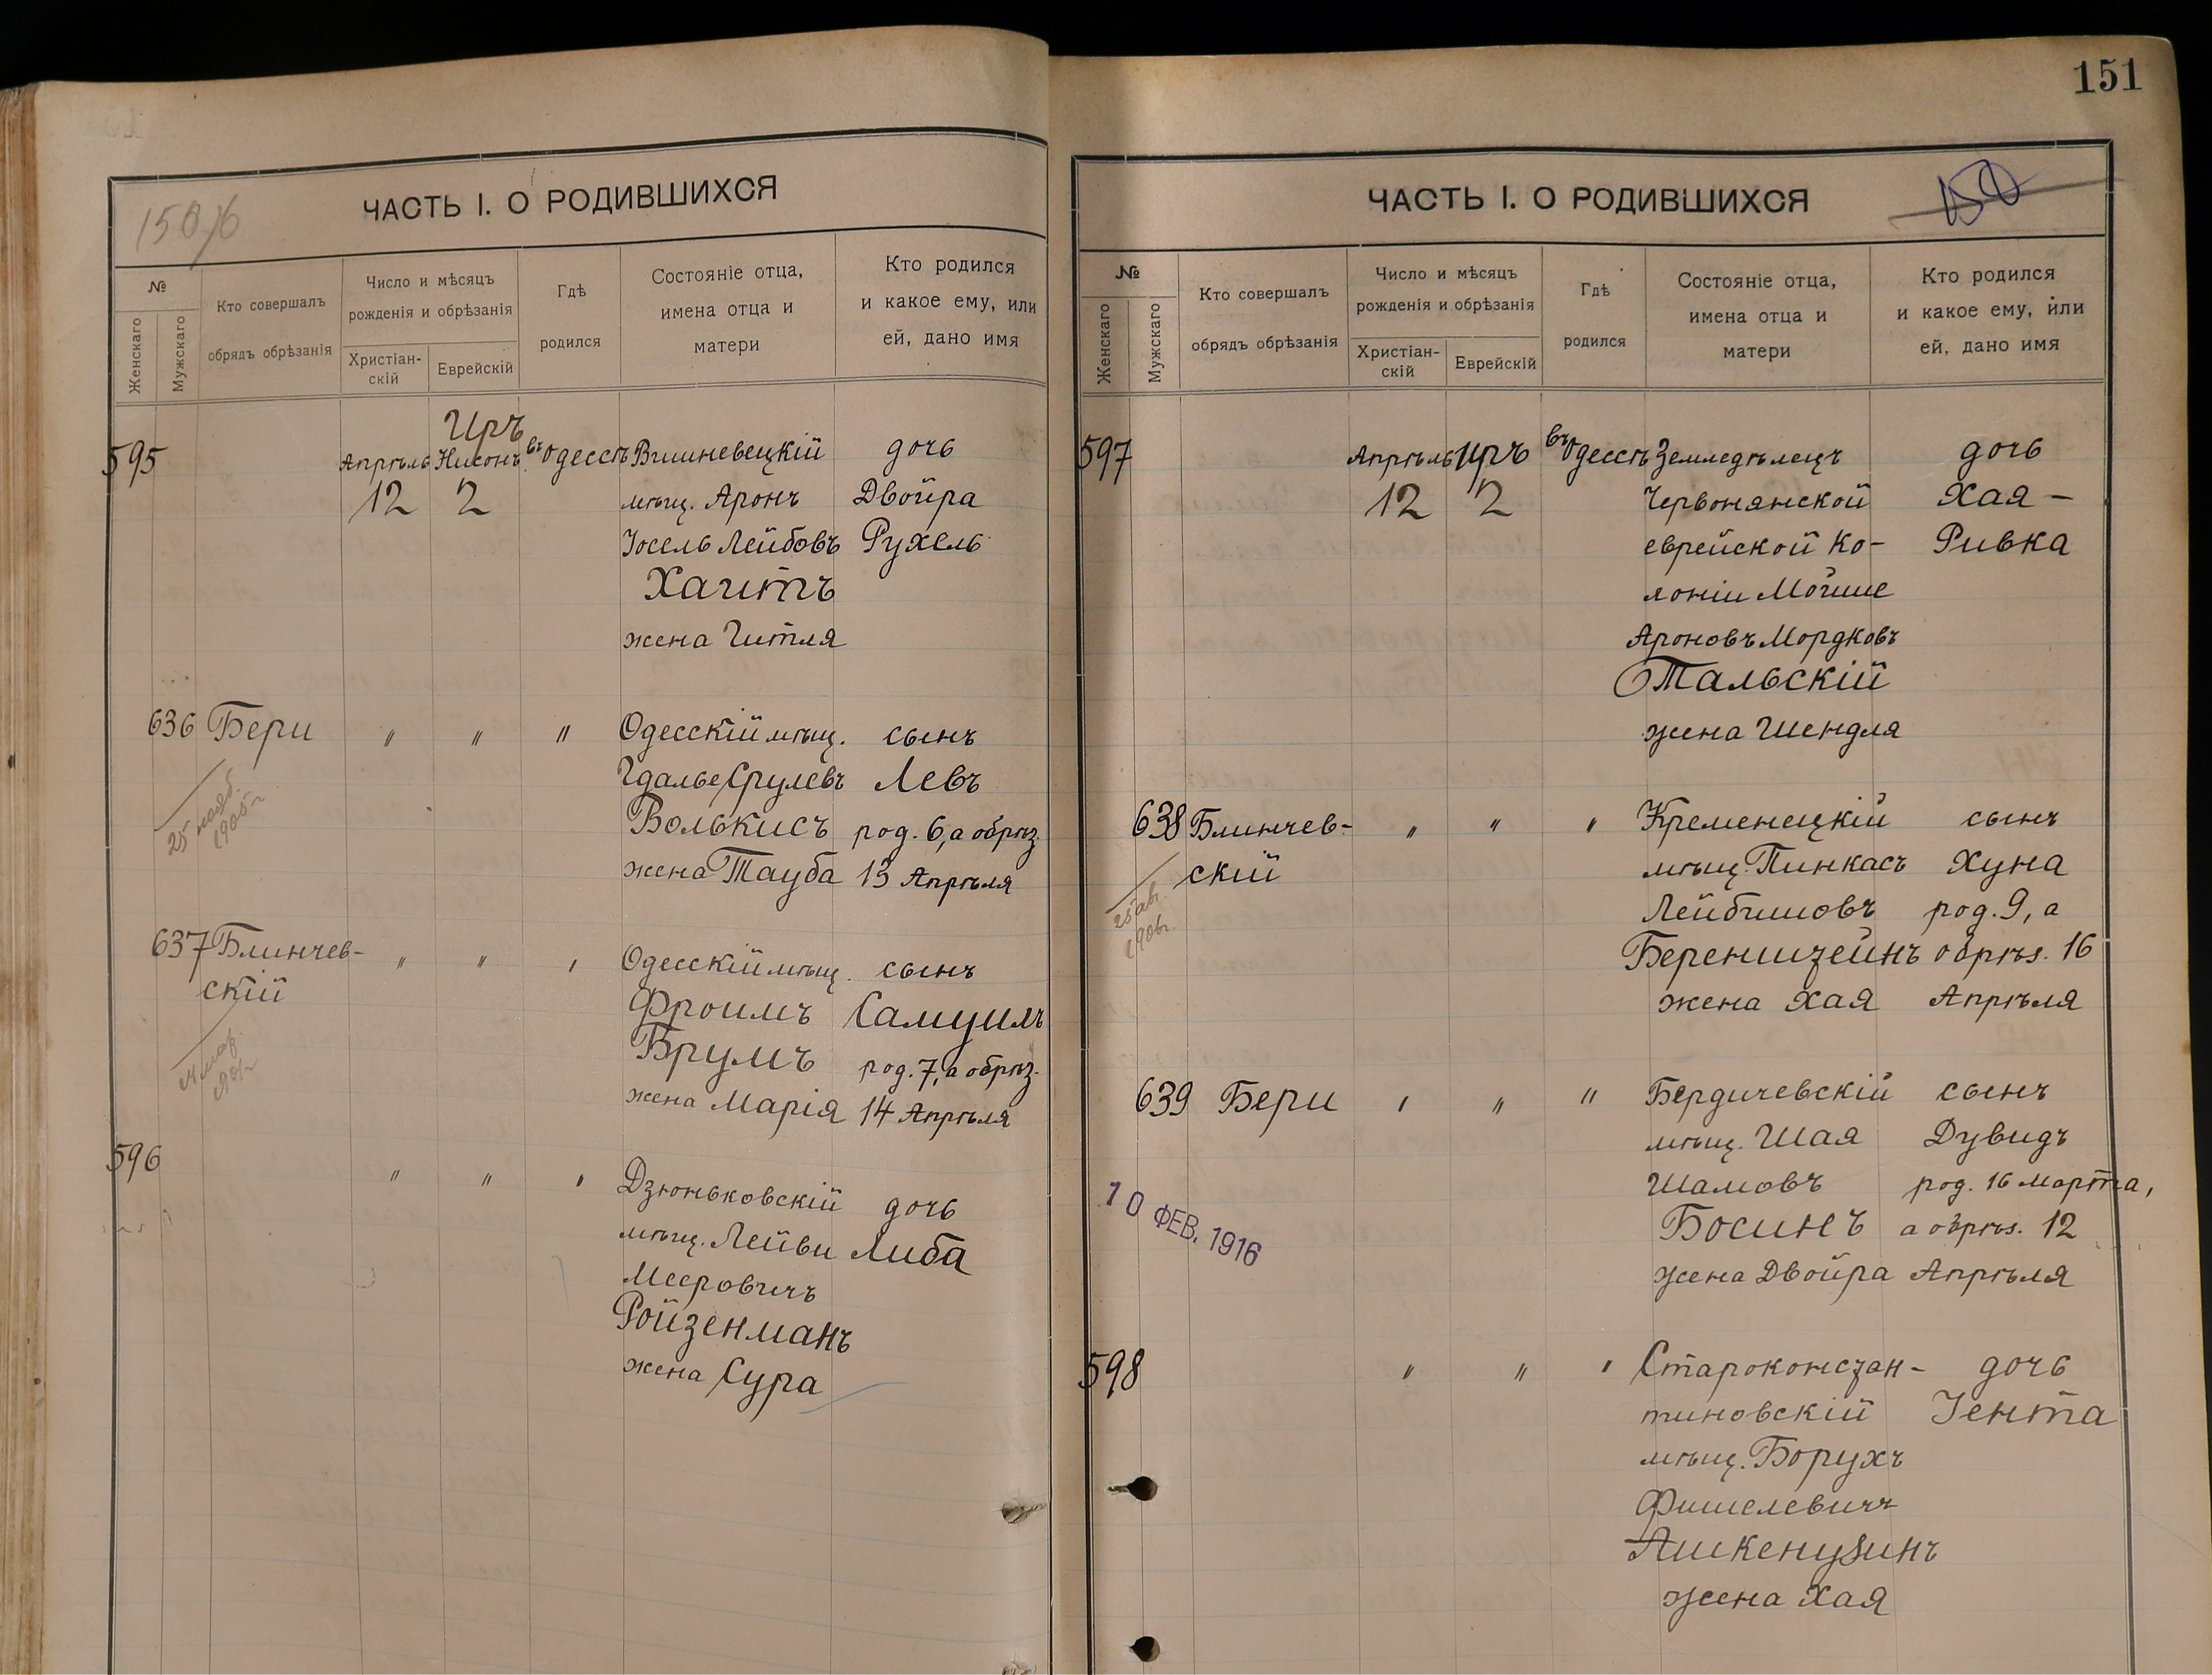 ЧАСТЬ I. О РОДИВШИХСЯ
№
Женскаго
Мужскаго
Кто совершалъ
обрядъ обрѣзанія
Число и мѣсяцъ
рожденія и обрѣзанія
Христіан-
скій
Еврейскій
Гдѣ
родился
Состояніе отца,
имена отца и
матери
Кто родился
и какое ему, или
ей, дано имя
Иръ
595 Апрѣль Нисонъ въ Одессѣ Вишневецкій дочь
12 2 мѣщ. Аронъ Двойра
Іосель Лейбовъ Рухель
Хаитъ
жена Гитля
636 Бери " " " Одесскій мѣщ. сынъ
Гдалье Срулевъ Левъ
Волькисъ род. 6, а обрѣз.
жена Тауба 13 Апрѣля
25 нояб.
1905 г
637 Блинчев- " " " Одесскій мѣщ. сынъ
скій Фроимъ Самуилъ
Брумъ род. 7, а обрѣз.
жена Марія 14 Апрѣля
596 " " " Дзюньковскій дочь
мѣщ. Лейви Либа
Мееровичъ
Ройзенманъ
жена Сура
151
ЧАСТЬ I. О РОДИВШИХСЯ
150
№
Женскаго
Мужскаго
Кто совершалъ
обрядъ обрѣзанія
Число и мѣсяцъ
рожденія и обрѣзанія
Христіан-
скій
Еврейскій
Гдѣ
родился
Состояніе отца,
имена отца и
матери
Кто родился
и какое ему, или
ей, дано имя
597 Апрѣль Иръ въ Одессѣ Земледѣлецъ дочь
12 2 Червонянской Хая-
еврейской Ко- Ривка
лоніи Мойше
Ароновъ Мордковъ
Тальскій
жена Шендля
638 Блинчев- " " " Кременецкій сынъ
скій мѣщ. Пинкасъ Хуна
Лейбишовъ род. 9, а
Беренштейнъ обрѣз. 16
жена Хая Апрѣля
25 авг.
1906 г.
639 Бери " " " Бердичевскій сынъ
мѣщ. Шая Дувидъ
Шамовъ род. 16 марта,
Босинъ а обрѣз. 12
жена Двойра Апрѣля
10 ФЕВ. 1916
598 " " " Староконстан- дочь
тиновскій Іента
мѣщ. Борухъ
Фишелевичъ
Ашкенузинъ
жена Хая